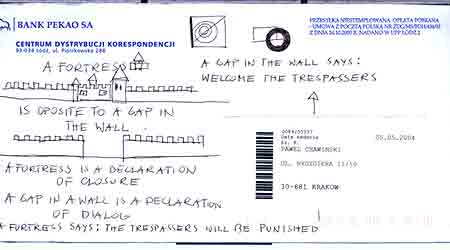 BANK PEKAO SA
CENTRUM DYSTRYBUCJI KORESPONDENCJI
93-034 Łódź, ul. Piotrkowska 288
PRZESYŁKA NIESTEMPLOWANA OPŁATA POBRANA
A FORTRESS
IS OPOSITE TO A GAP IN
THE WALL
A FORTRESS IS A DECLARATION
OF CLOSURE
A GAP IN A WALL IS A DECLARATION
OF DIALOG
A FURTRESS SAYS: THE TRESPASSERS WILL BE PUNISHED
A GAP IN THE WALL SAYS:
WELCOME THE TRESPASSERS
05.05.2004
PAWEŁ CHAWINSKI
30-081 KRAKOW